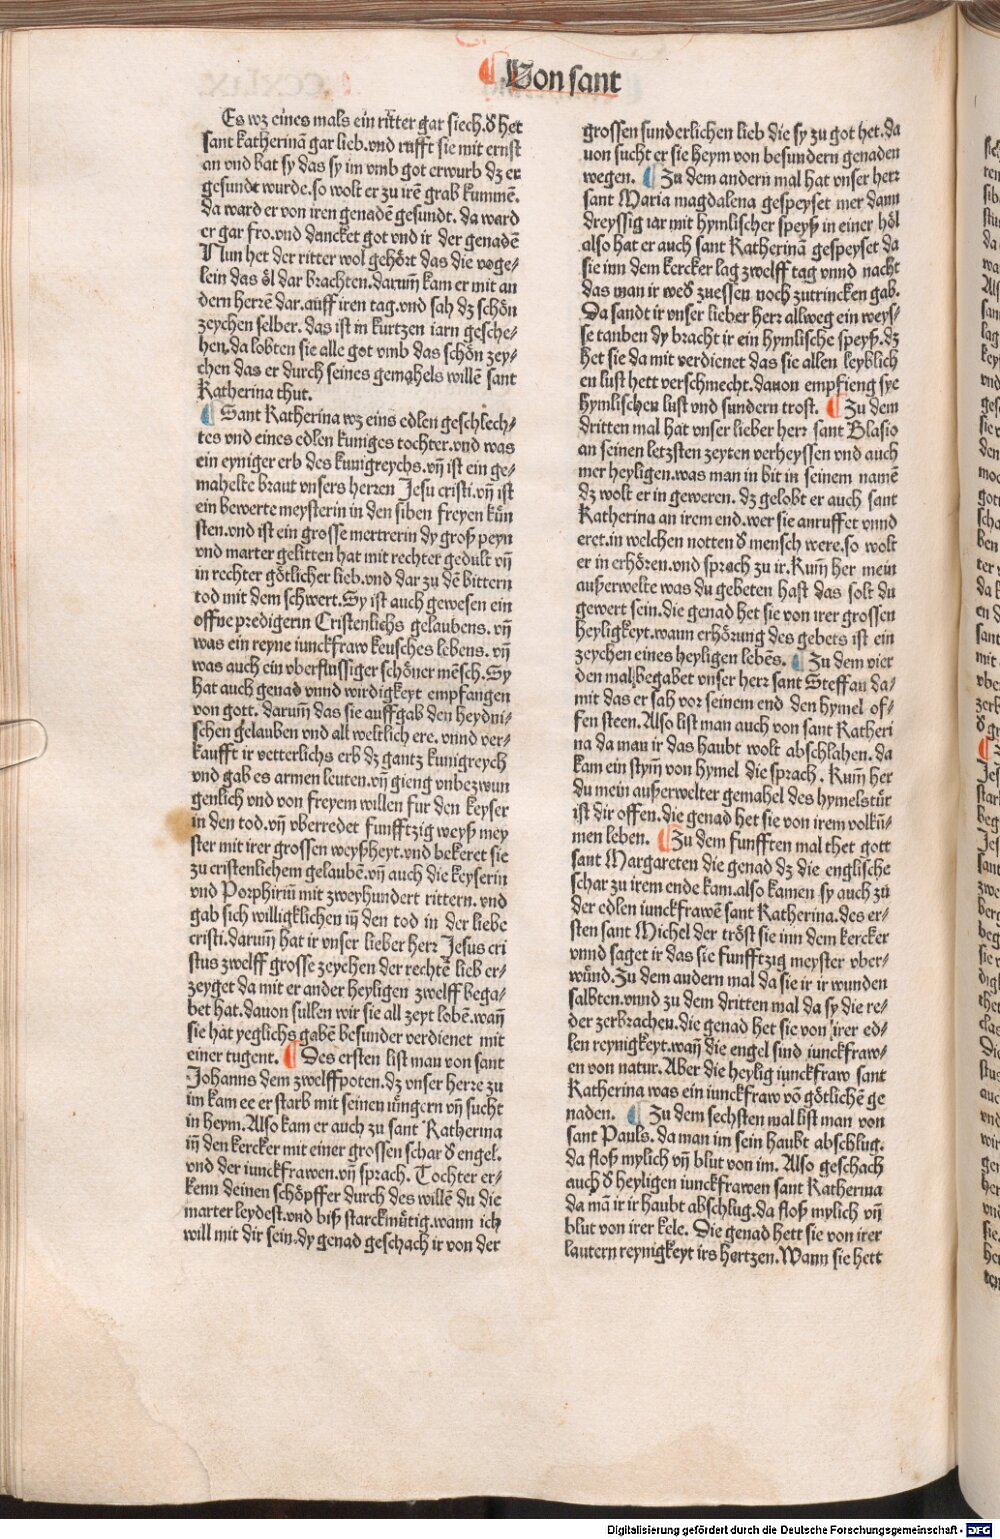 Von sant
Es wz eines mals ein ritter gar siech. ð het
sant katherinã gar lieb. vnd rufft sie mit ernst
an vnd bat sy das sy im vmb got erwurb dz er
gesundt wurde. so wolt er zu irẽ grab kummẽ.
da ward er von iren genadẽ gesundt. da ward
er gar fro. vnd dancket got vnd ir der genadẽ
Nun het der ritter wol gehört das die voge⸗
lein das öl dar brachten. darum̃ kam er mit an
dern herrẽ dar. auff iren tag. vnd sah dz schön
zeychen selber. das ist in kurtzen iarn gesche⸗
hen. da lobten sie alle got vmb das schön zey⸗
chen das er durch seines gemahels willẽ sant
Katherina thut.
¶ Sant Katherina wz eins edlen geschlech⸗
tes vnd eines edlen kuniges tochter. vnd was
ein eyniger erb des kunigreychs. vñ ist ein ge⸗
mahelte braut vnsers herren Jesu cristi. vñ ist
ein bewerte meysterin in den siben freyen kün
sten. vnd ist ein grosse mertrerin dy groß peyn
vnd marter gelitten hat mit rechter gedult vñ
in rechter götlicher lieb. vnd dar zu dẽ bittern
tod mit dem schwert. Sy ist auch gewesen ein
offne predigerin Cristenlichs gelaubens. vñ
was ein reyne iunckfraw keusches lebens. vñ
was auch ein vberflussiger schöner mẽsch. Sy
hat auch genad vnnd wirdigkeyt empfangen
von gott. darum̃ das sie auffgab den heydni⸗
schen gelauben vnd all weltlich ere. vnnd ver⸗
kaufft ir vetterlichs erb dz gantz kunigreych
vnd gab es armen leuten. vñ gieng vnbezwun
genlich vnd von freyem willen fur den keyser
in den tod. vñ vberredet funfftzig weyß mey
ster mit irer grossen weyßheyt. vnd bekeret sie
zu cristenlichem gelaubẽ. vñ auch die keyserin
vnd Porphiriũ mit zweyhundert rittern. vnd
gab sich willigklichen iñ den tod in der liebe
cristi. darum̃ hat ir vnser lieber herr Jesus cri
stus zwelff grosse zeychen der rechtẽ lieb er⸗
zeyget da mit er ander heyligen zwelff bega⸗
bet hat. dauon sullen wir sie all zeyt lobẽ. wañ
sie hat yeglichs gabẽ besunder verdienet mit
einer tugent. ¶ Des ersten list man von sant
Johanns dem zwelffpoten. dz vnser herre zu
im kam ee er starb mit seinen iüngern vñ sucht
in heym. Also kam er auch zu sant Katherina
iñ den kercker mit einer grossen schar ð engel.
vnd der iunckfrawen. vñ sprach. Tochter er⸗
kenn deinen schöpffer durch des willẽ du die
marter leydest. vnd biß starckmütig. wann ich
will mit dir sein. dy genad geschach ir von der
grossen sunderlichen lieb die sy zu got het. da
uon sucht er sie heym von besundern genaden
wegen. ¶ Zu dem andern mal hat vnser herr
sant Maria magdalena gespeyset mer dann
dreyssig iar mit hymlischer speyß in einer höl
also hat er auch sant Katherinã gespeyset da
sie inn dem kercker lag zwelff tag vnnd nacht
das man ir weð zuessen noch zutrincken gab.
Da sandt ir vnser lieber herr allweg ein weys⸗
se tauben dy bracht ir ein hymlische speyß. dz
het sie da mit verdienet das sie allen leyblich
en lust hett verschmecht. dauon empfieng sye
hymlischen lust vnd sundern trost. ¶ Zu dem
dritten mal hat vnser lieber herr sant Blasio
an seinen letzsten zeyten verheyssen vnd auch
mer heyligen. was man in bit in seinem namẽ
dz wolt er in geweren. dz gelobt er auch sant
Katherina an irem end. wer sie anruffet vnnd
eret. in welchen notten ð mensch were. so wolt
er in erhören. vnd sprach zu ir. Kum̃ her mein
außerwelte was du gebeten hast das solt du
gewert sein. die genad het sie von irer grossen
heyligkeyt. wann erhörung des gebets ist ein
zeychen eines heyligen lebẽs. ¶ Zu dem vier
den mal begabet vnser herr sant Steffan da⸗
mit das er sah vor seinem end den hymel of⸗
fen steen. Also list man auch von sant Katheri
na da man ir das haubt wolt abschlahen. da
kam ein stym̃ von hymel die sprach. Kum̃ her
du mein außerwelter gemahel des hymelstür
ist dir offen. die genad het sie von irem volkũ⸗
men leben. ¶ Zu dem funfften mal thet gott
sant Margareten die genad dz die englische
schar zu irem ende kam. also kamen sy auch zu
der edlen iunckfrawẽ sant Katherina. des er⸗
sten sant Michel der tröst sie inn dem kercker
vnnd saget ir das sie funfftzig meyster vber⸗
wünd. Zu dem andern mal da sie ir ir wunden
salbten. vnnd zu dem dritten mal da sy die re⸗
der zerbrachen. die genad het sie von irer ed⸗
len reynigkeyt. wañ die engel sind iunckfraw⸗
en von natur. Aber die heylig iunckfraw sant
Katherina was ein iunckfraw võ götlichẽ ge
naden. ¶ Zu dem sechsten mal list man von
sant Pauls. da man im sein haubt abschlug.
da floß mylich vñ blut von im. Also geschach
auch ð heyligen iunckfrawen sant Katherina
da mã ir ir haubt abschlug. da floß mylich vñ
blut von irer kele. Die genad hett sie von irer
lautern reynigkeyt irs hertzen. Wann sie hett
Digitalisierung gefördert durch die Deutsche Forschungsgemeinschaft - DFG